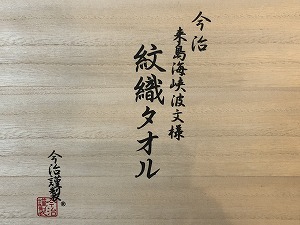 今治
来島海峡波文様
紋織タオル
今治謹製®